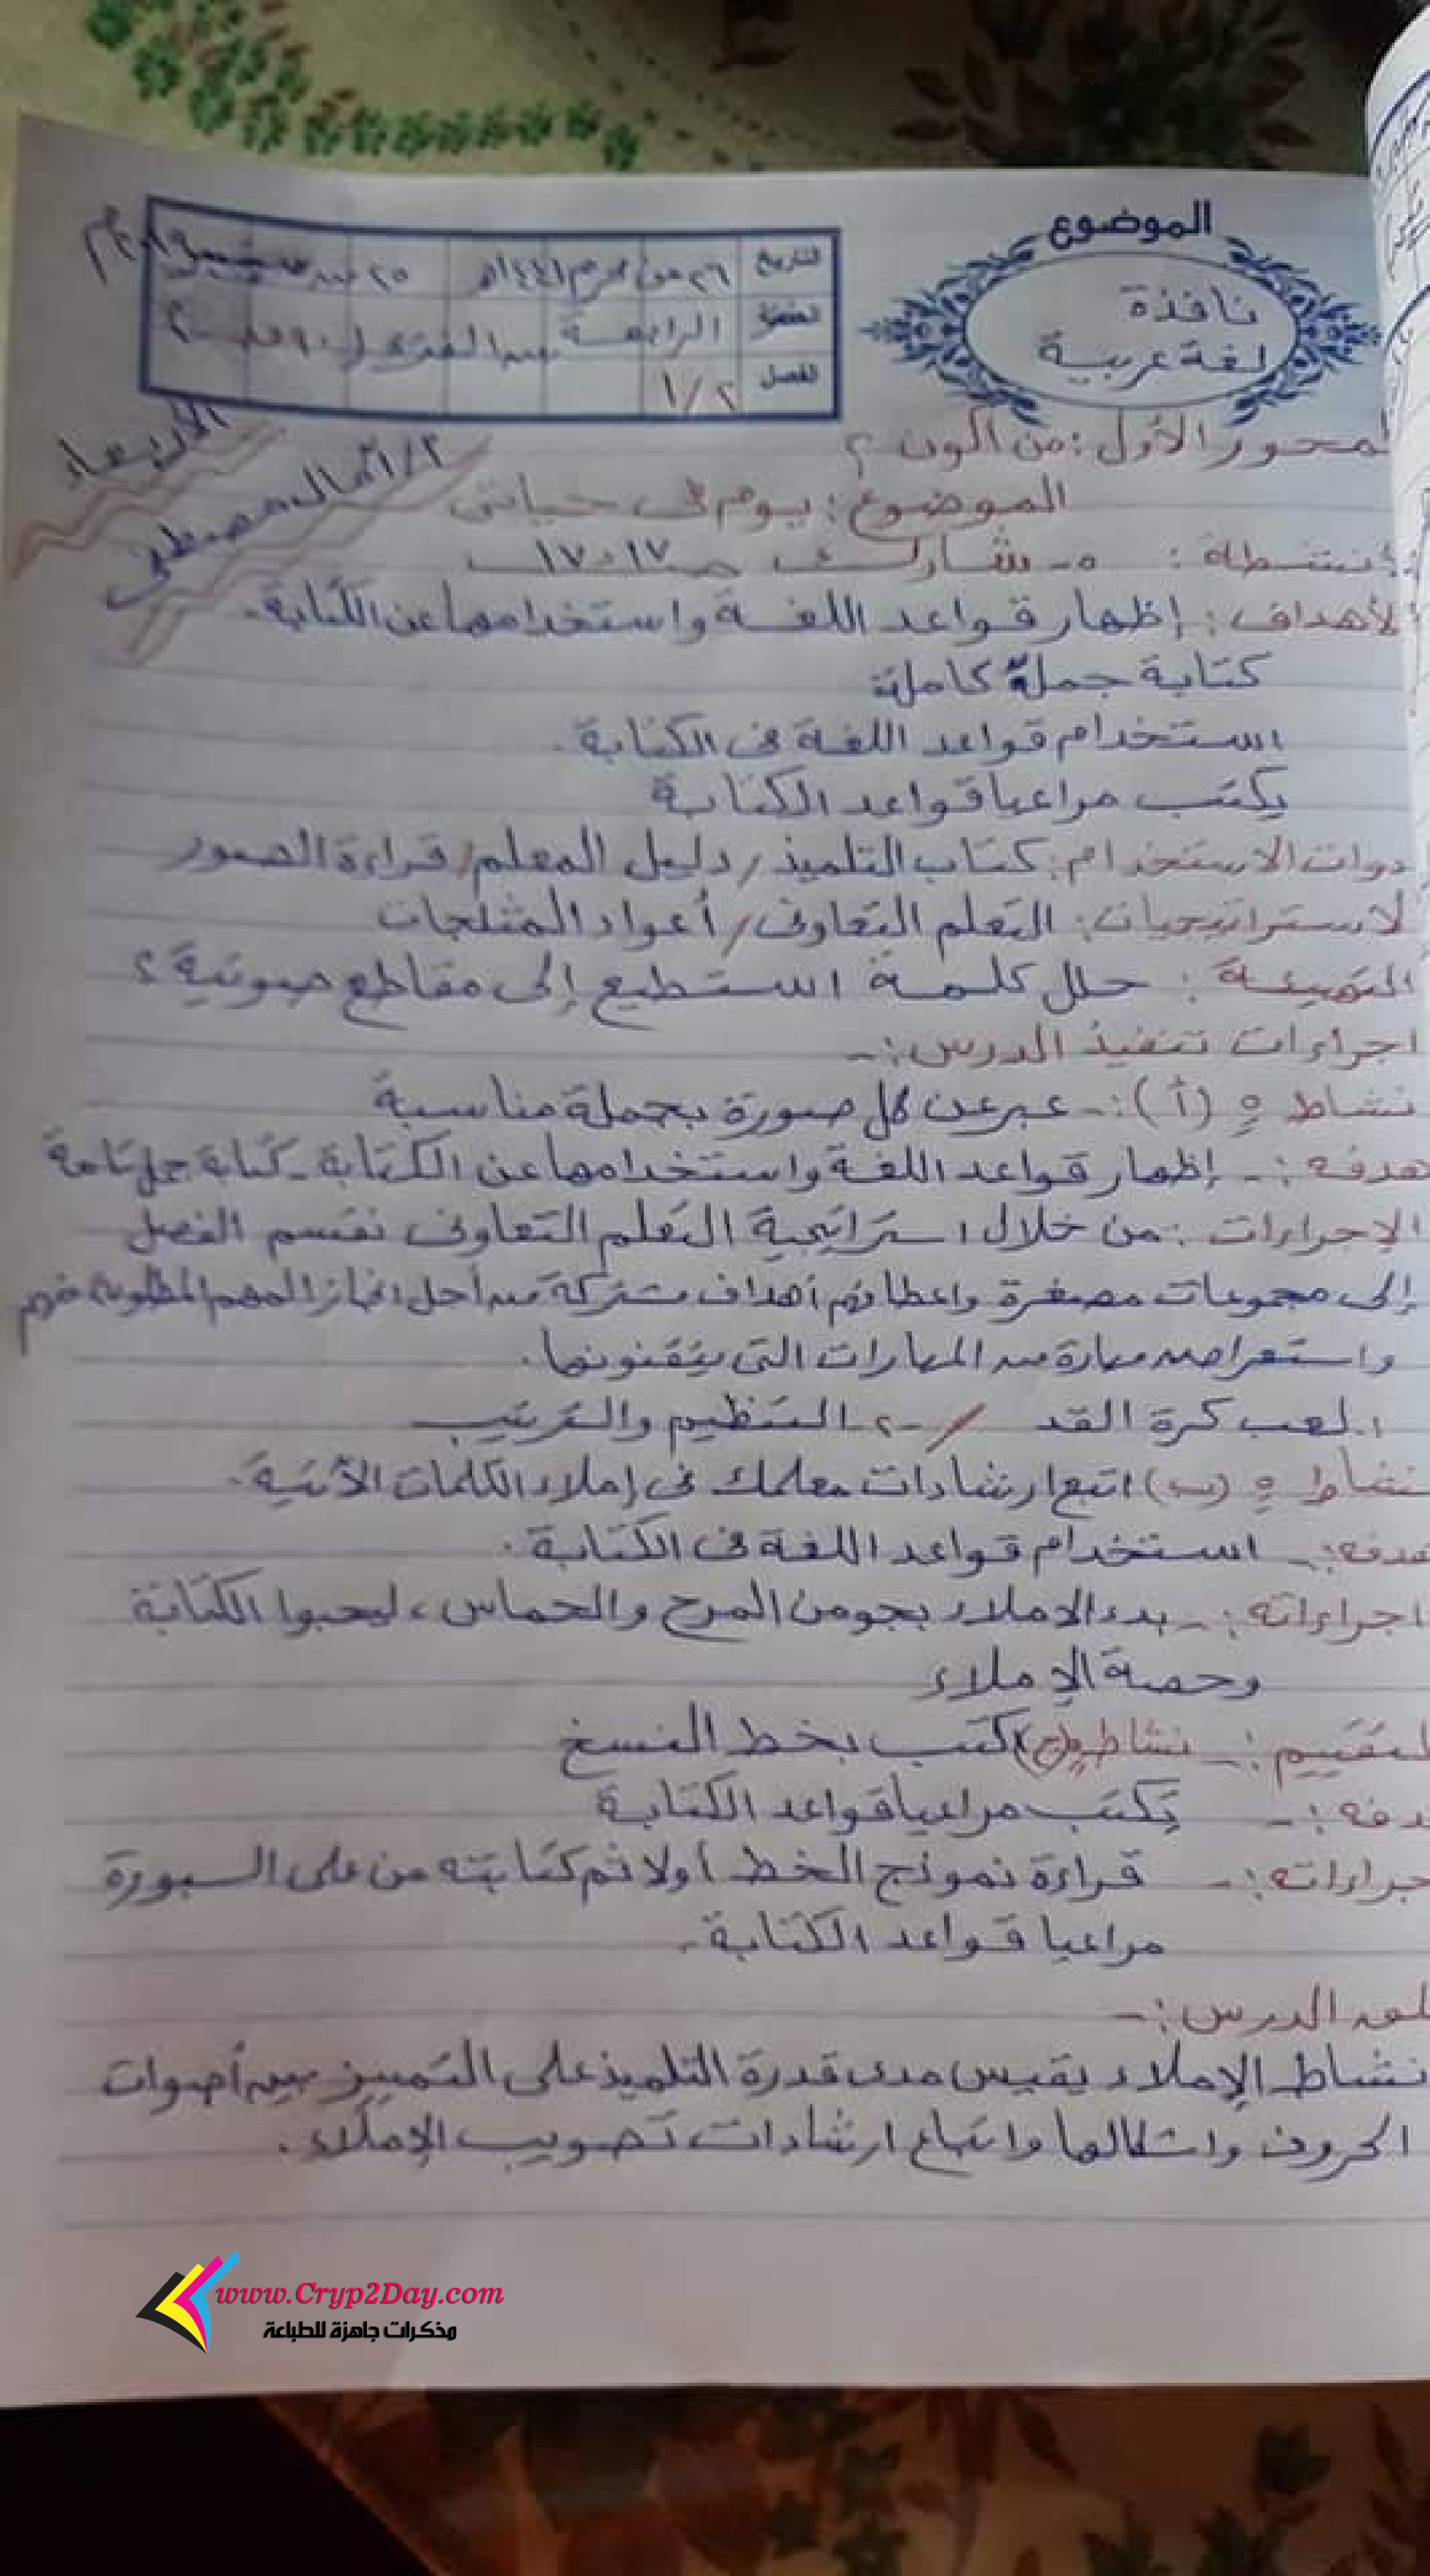 الموضوع
نافذة
لغة عربية
التاريخ ٢٦ من محرم ١٤٤١هـ ٢٥ من سبتمبر ٢٠١٩م
الحصة الرابعة من الفترة
الفصل ١/٢
الأربعاء
١/٢ آمال مصطفى
لمحور الأول: من أكون؟
الموضوع: يوم فى حياتى
أنشطة: ٥- شارك صـ ١٧، ١٧
لأهداف: إظهار قواعد اللغة واستخدامها عن الكتابة.
كتابة جملة كاملة
استخدام قواعد اللغة فى الكتابة.
يكتب مراعيا قواعد الكتابة
دوات الاستخدام: كتاب التلميذ / دليل المعلم / قراءة الصور
لاستراتيجيات: التعلم التعاونى / أعواد المثلجات
التهيئة: حلل كلمة استطيع إلى مقاطع صوتية؟
اجراءات تنفيذ الدرس:-
نشاط ٥ (أ):- عبر عن كل صورة بجملة مناسبة
هدفه:- إظهار قواعد اللغة واستخدامها عن الكتابة - كتابة جمل تامة
الإجراءات: من خلال استراتيجية التعلم التعاونى نقسم الفصل
إلى مجموعات مصغرة واعطائهم أهداف مشتركة من أجل انجاز المهم المطلوبة منهم
واستعراض مهارة من المهارات التى يتقنونها.
١. لعب كرة القد / ٢- التنظيم والترتيب
نشاط ٥ (ب) اتبع ارشادات معلمك فى إملاء الكلمات الآتية.
هدفه:- استخدام قواعد اللغة فى الكتابة.
اجراءاته:- بدء الاملاء بجو من المرح والحماس، ليحبوا الكتابة
وحصة الإملاء
لتقييم:- نشاط ٥(ج) اكتب بخط النسخ
دفه:- يكتب مراعيا قواعد الكتابة
جراءاته:- قراءة نموذج الخط أولا ثم كتابته من على السبورة
مراعيا قواعد الكتابة.
لق الدرس:-
نشاط الإملاء يقيس مدى قدرة التلميذ على التمييز بين أصوات
الحروف واشكالها واتباع ارشادات تصويب الإملاء.
www.Cryp2Day.com
مذكرات جاهزة للطباعة